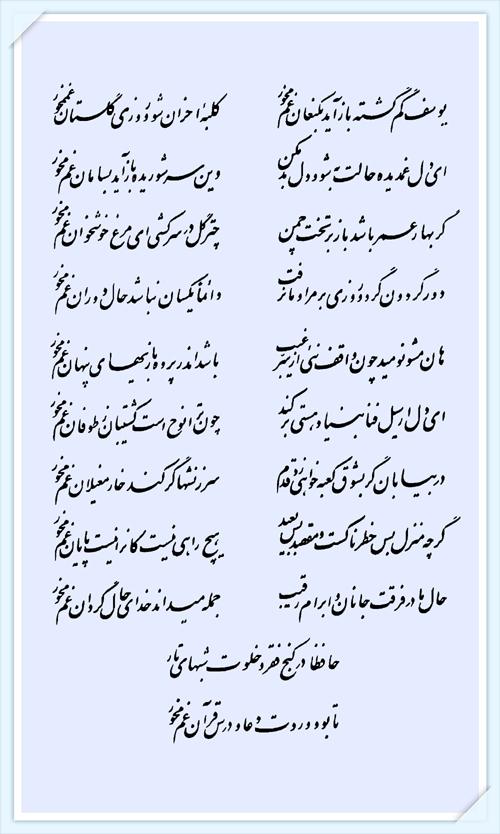 یوسف گم گشته بازآید به کنعان غم مخور کلبهٔ احزان شود روزی گلستان غم مخور
ای دل غمدیده حالت به شود دل بد مکن وین سر شوریده بازآید بسامان غم مخور
گر بهار عمر باشد باز بر تخت چمن چتر گل در سر کشی ای مرغ خوشخوان غم مخور
دور گردون گر دو روزی بر مراد ما نرفت دائما یکسان نباشد حال دوران غم مخور
هان مشو نومید چون واقف نئی از سر غیب باشد اندر پرده بازیهای پنهان غم مخور
ای دل ار سیل فنا بنیاد هستی بر کند چون ترا نوح است کشتیبان ز طوفان غم مخور
در بیابان گر بشوق کعبه خواهی زد قدم سرزنشها گر کند خار مغیلان غم مخور
گرچه منزل بس خطرناکست و مقصد بس بعید هیچ راهی نیست کانرا نیست پایان غم مخور
حال ما در فرقت جانان و ابرام رقیب جمله میداند خدای حال گردان غم مخور
حافظا در کنج فقر و خلوت شبهای تار
تا بود وردت دعا و درس قرآن غم مخور